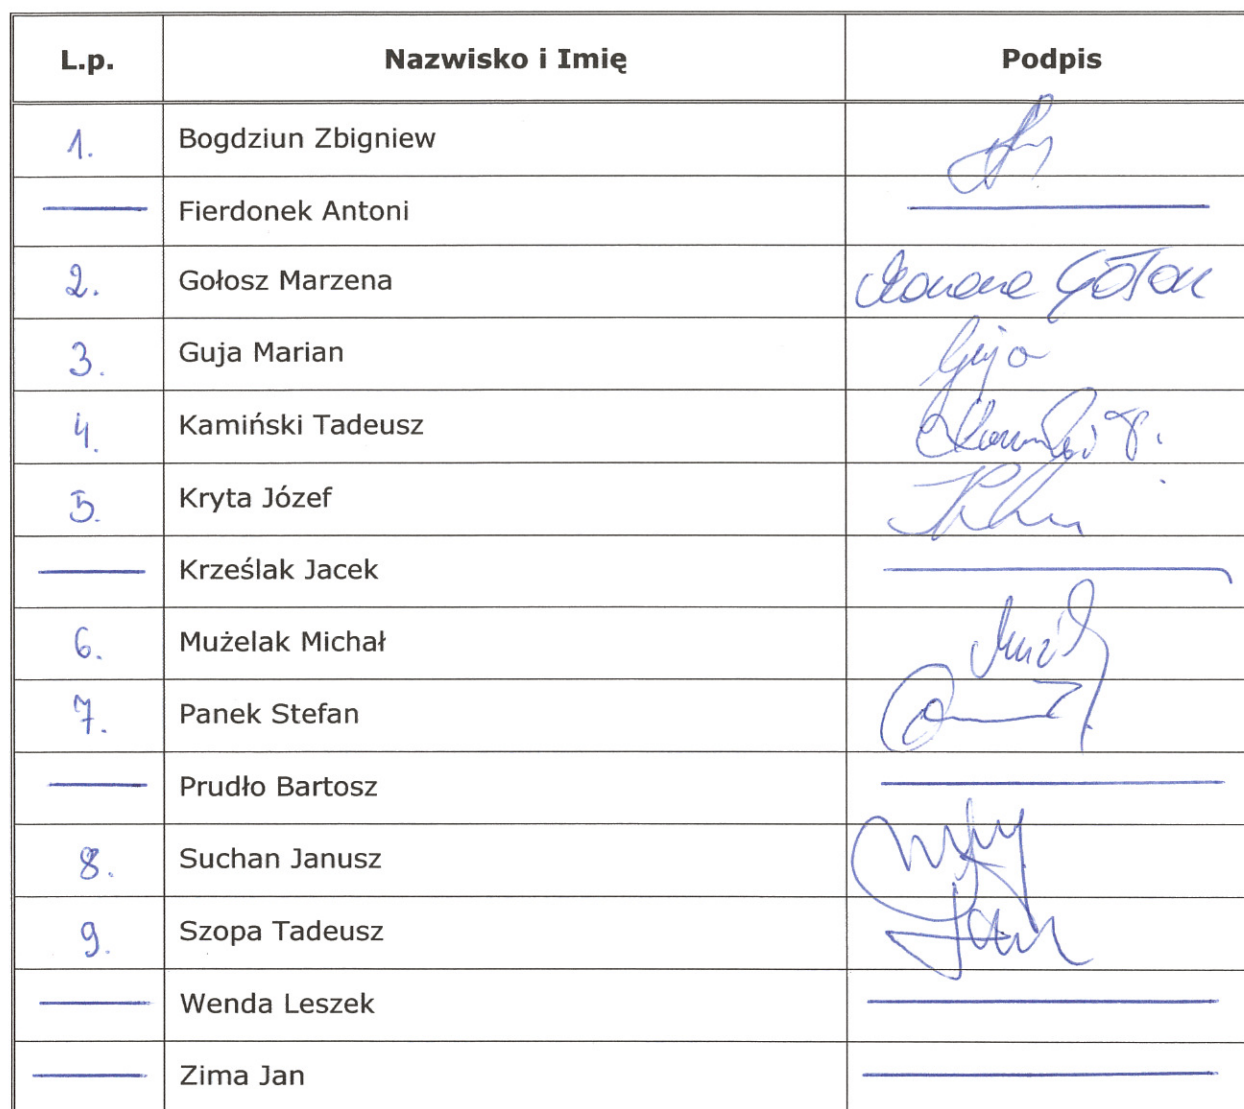 L.p. Nazwisko i Imię Podpis
1. Bogdziun Zbigniew
Fierdonek Antoni
2. Gołosz Marzena
3. Guja Marian Guja
4. Kamiński Tadeusz
5. Kryta Józef
Krześlak Jacek
6. Mużelak Michał
7. Panek Stefan
Prudło Bartosz
8. Suchan Janusz
9. Szopa Tadeusz
Wenda Leszek
Zima Jan